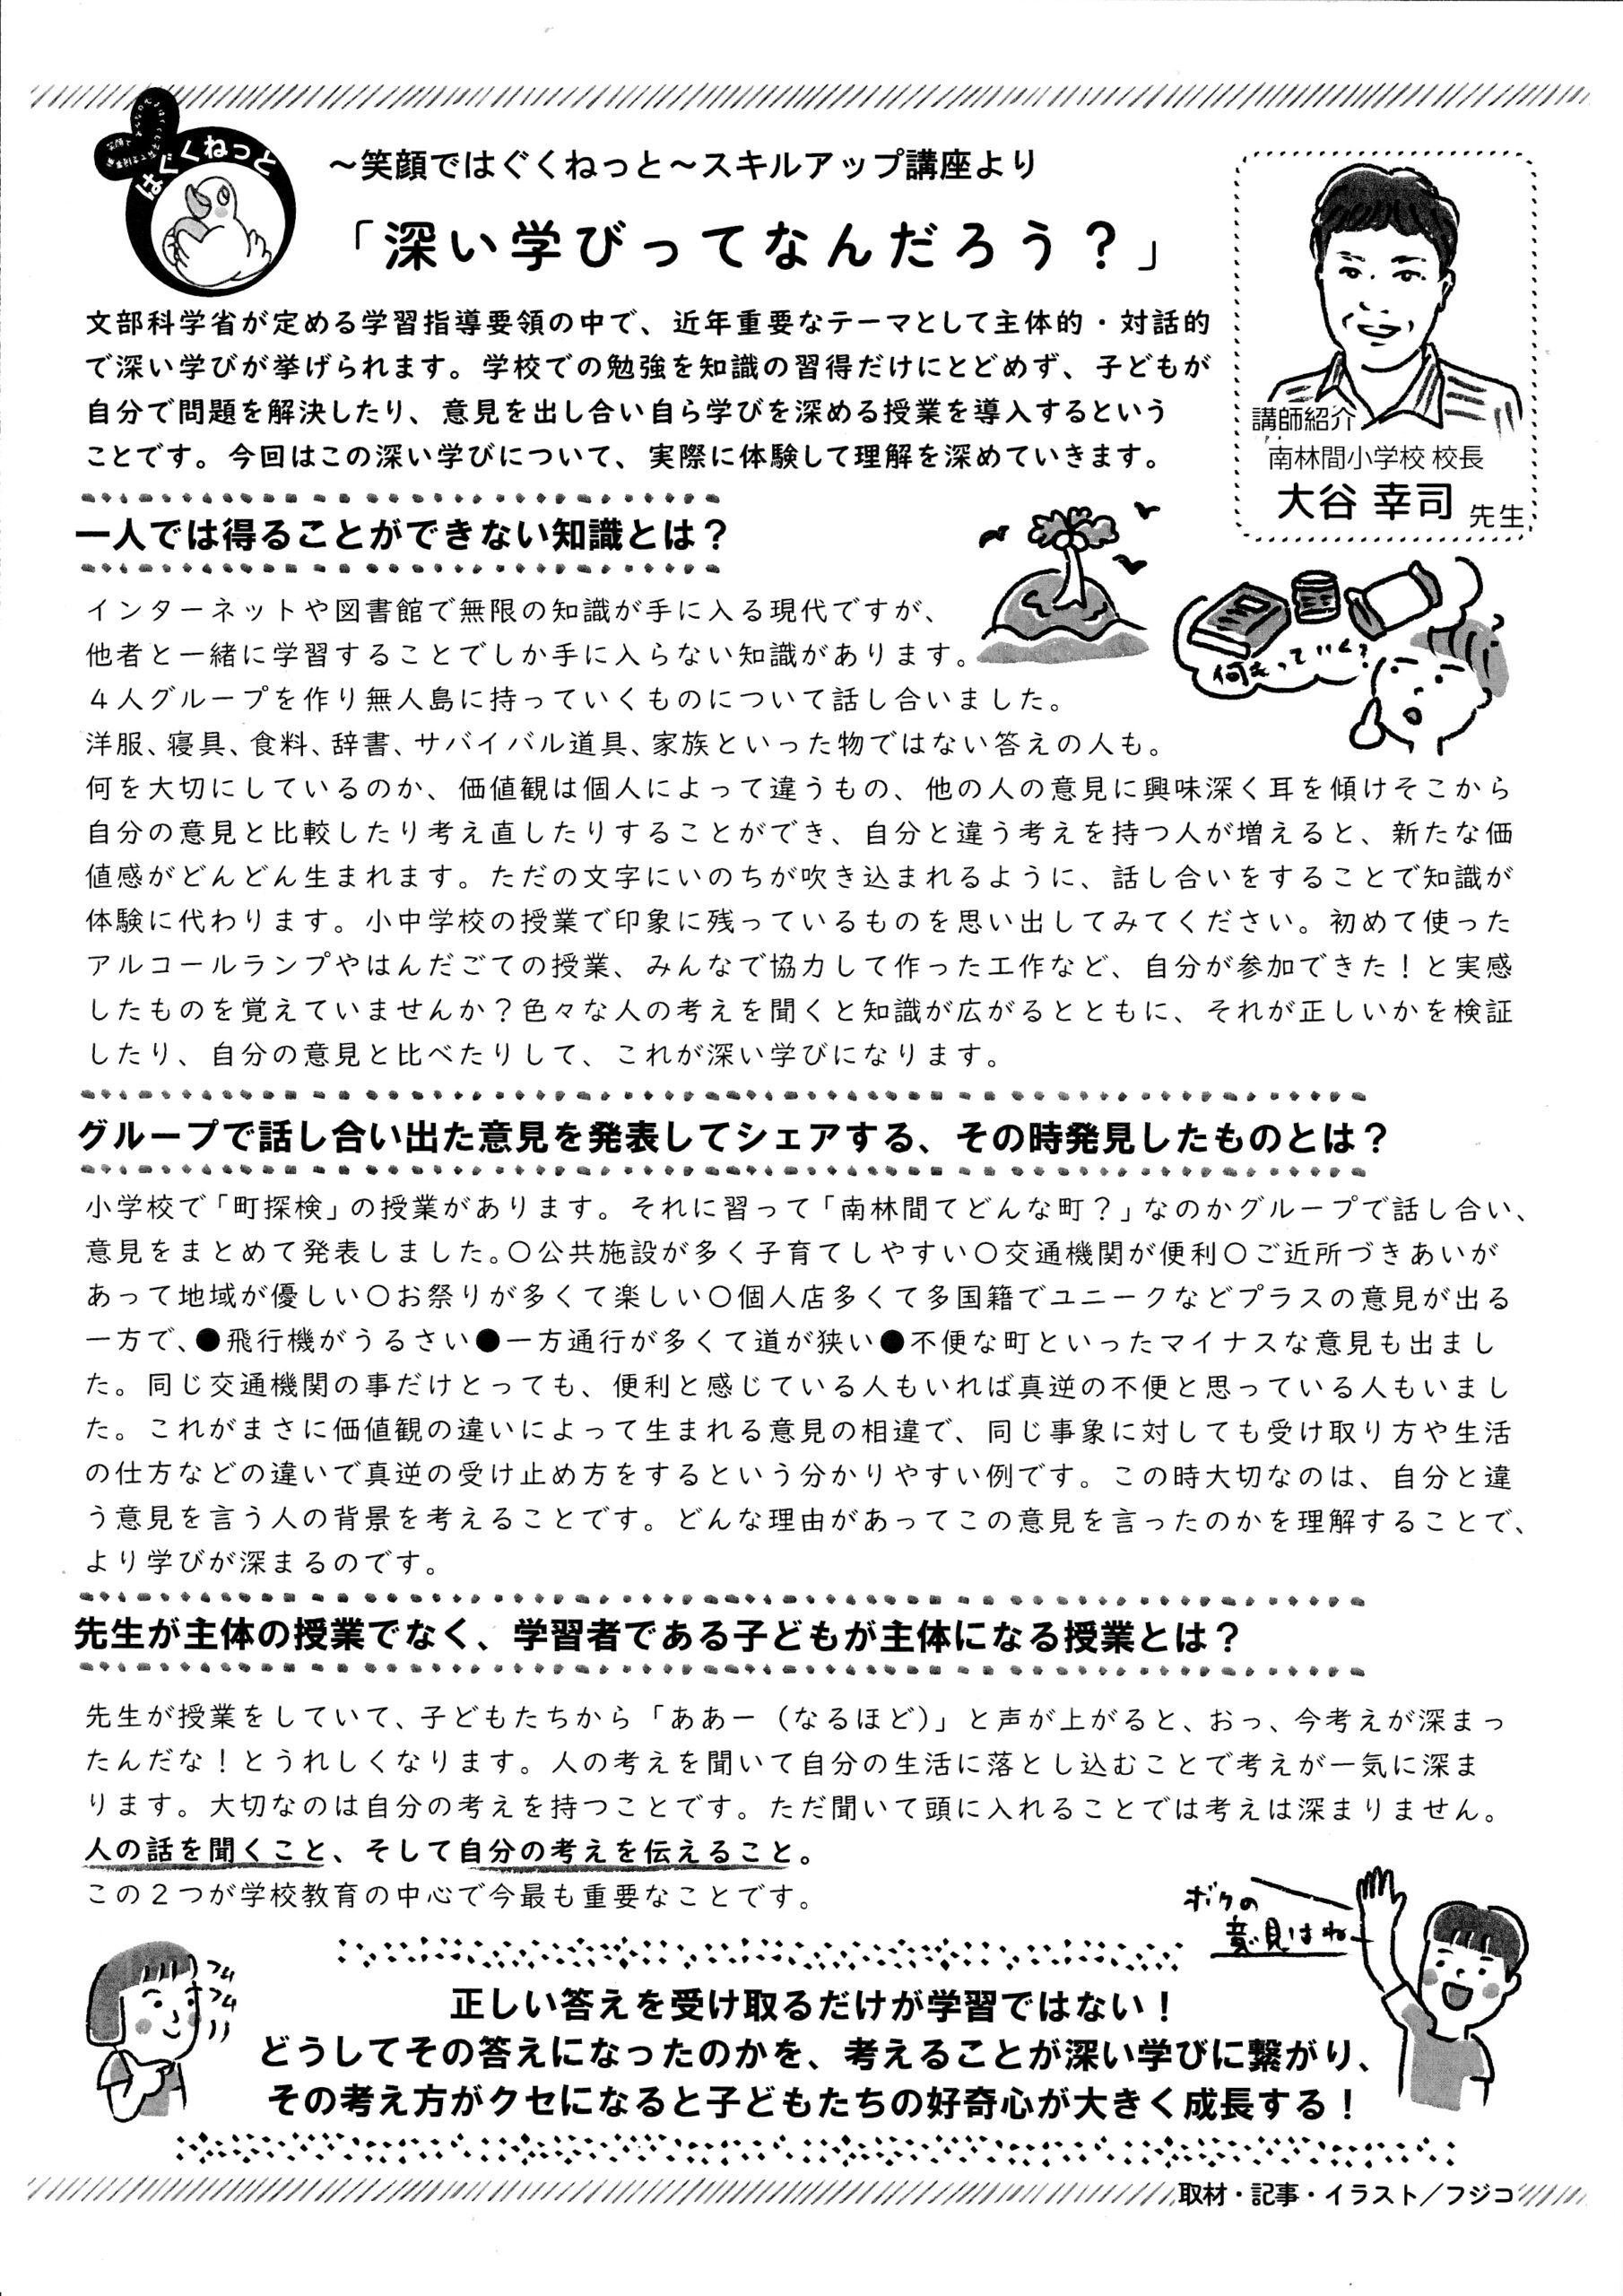 はぐくねっと
～笑顔ではぐくねっと～スキルアップ講座より
「深い学びってなんだろう？」
文部科学省が定める学習指導要領の中で、近年重要なテーマとして主体的・対話的
で深い学びが挙げられます。学校での勉強を知識の習得だけにとどめず、子どもが
自分で問題を解決したり、意見を出し合い自ら学びを深める授業を導入するという
ことです。今回はこの深い学びについて、実際に体験して理解を深めていきます。
講師紹介
南林間小学校 校長
大谷 幸司 先生
一人では得ることができない知識とは？
インターネットや図書館で無限の知識が手に入る現代ですが、
他者と一緒に学習することでしか手に入らない知識があります。
４人グループを作り無人島に持っていくものについて話し合いました。
洋服、寝具、食料、辞書、サバイバル道具、家族といった物ではない答えの人も。
何を大切にしているのか、価値観は個人によって違うもの、他の人の意見に興味深く耳を傾けそこから
自分の意見と比較したり考え直したりすることができ、自分と違う考えを持つ人が増えると、新たな価
値感がどんどん生まれます。ただの文字にいのちが吹き込まれるように、話し合いをすることで知識が
体験に代わります。小中学校の授業で印象に残っているものを思い出してみてください。初めて使った
アルコールランプやはんだごての授業、みんなで協力して作った工作など、自分が参加できた！と実感
したものを覚えていませんか？色々な人の考えを聞くと知識が広がるとともに、それが正しいかを検証
したり、自分の意見と比べたりして、これが深い学びになります。
何もっていく？
グループで話し合い出た意見を発表してシェアする、その時発見したものとは？
小学校で「町探検」の授業があります。それに習って「南林間てどんな町？」なのかグループで話し合い、
意見をまとめて発表しました。〇公共施設が多く子育てしやすい〇交通機関が便利〇ご近所づきあいが
あって地域が優しい〇お祭りが多くて楽しい〇個人店多くて多国籍でユニークなどプラスの意見が出る
一方で、●飛行機がうるさい●一方通行が多くて道が狭い●不便な町といったマイナスな意見も出まし
た。同じ交通機関の事だけとっても、便利と感じている人もいれば真逆の不便と思っている人もいまし
た。これがまさに価値観の違いによって生まれる意見の相違で、同じ事象に対しても受け取り方や生活
の仕方などの違いで真逆の受け止め方をするという分かりやすい例です。この時大切なのは、自分と違
う意見を言う人の背景を考えることです。どんな理由があってこの意見を言ったのかを理解することで、
より学びが深まるのです。
先生が主体の授業でなく、学習者である子どもが主体になる授業とは？
先生が授業をしていて、子どもたちから「ああー（なるほど）」と声が上がると、おっ、今考えが深まっ
たんだな！とうれしくなります。人の考えを聞いて自分の生活に落とし込むことで考えが一気に深ま
ります。大切なのは自分の考えを持つことです。ただ聞いて頭に入れることでは考えは深まりません。
人の話を聞くこと、そして自分の考えを伝えること。
この２つが学校教育の中心で今最も重要なことです。
ボクの
意見はね
フム
フム
正しい答えを受け取るだけが学習ではない！
どうしてその答えになったのかを、考えることが深い学びに繋がり、
その考え方がクセになると子どもたちの好奇心が大きく成長する！
取材・記事・イラスト／フジコ